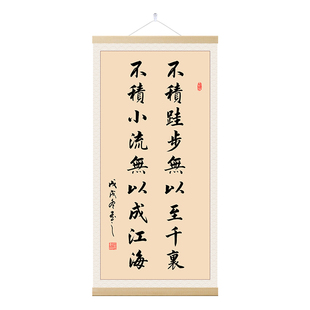 不積跬步無以至千裏
不積小流無以成江海
戊戌年